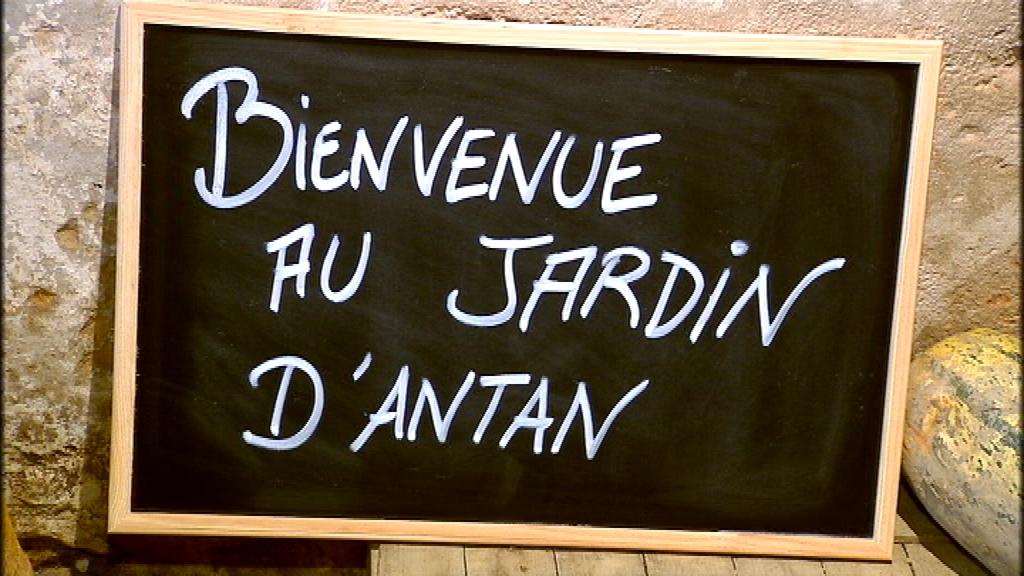 BiENVENUE
AU JARDiN
D'ANTAN